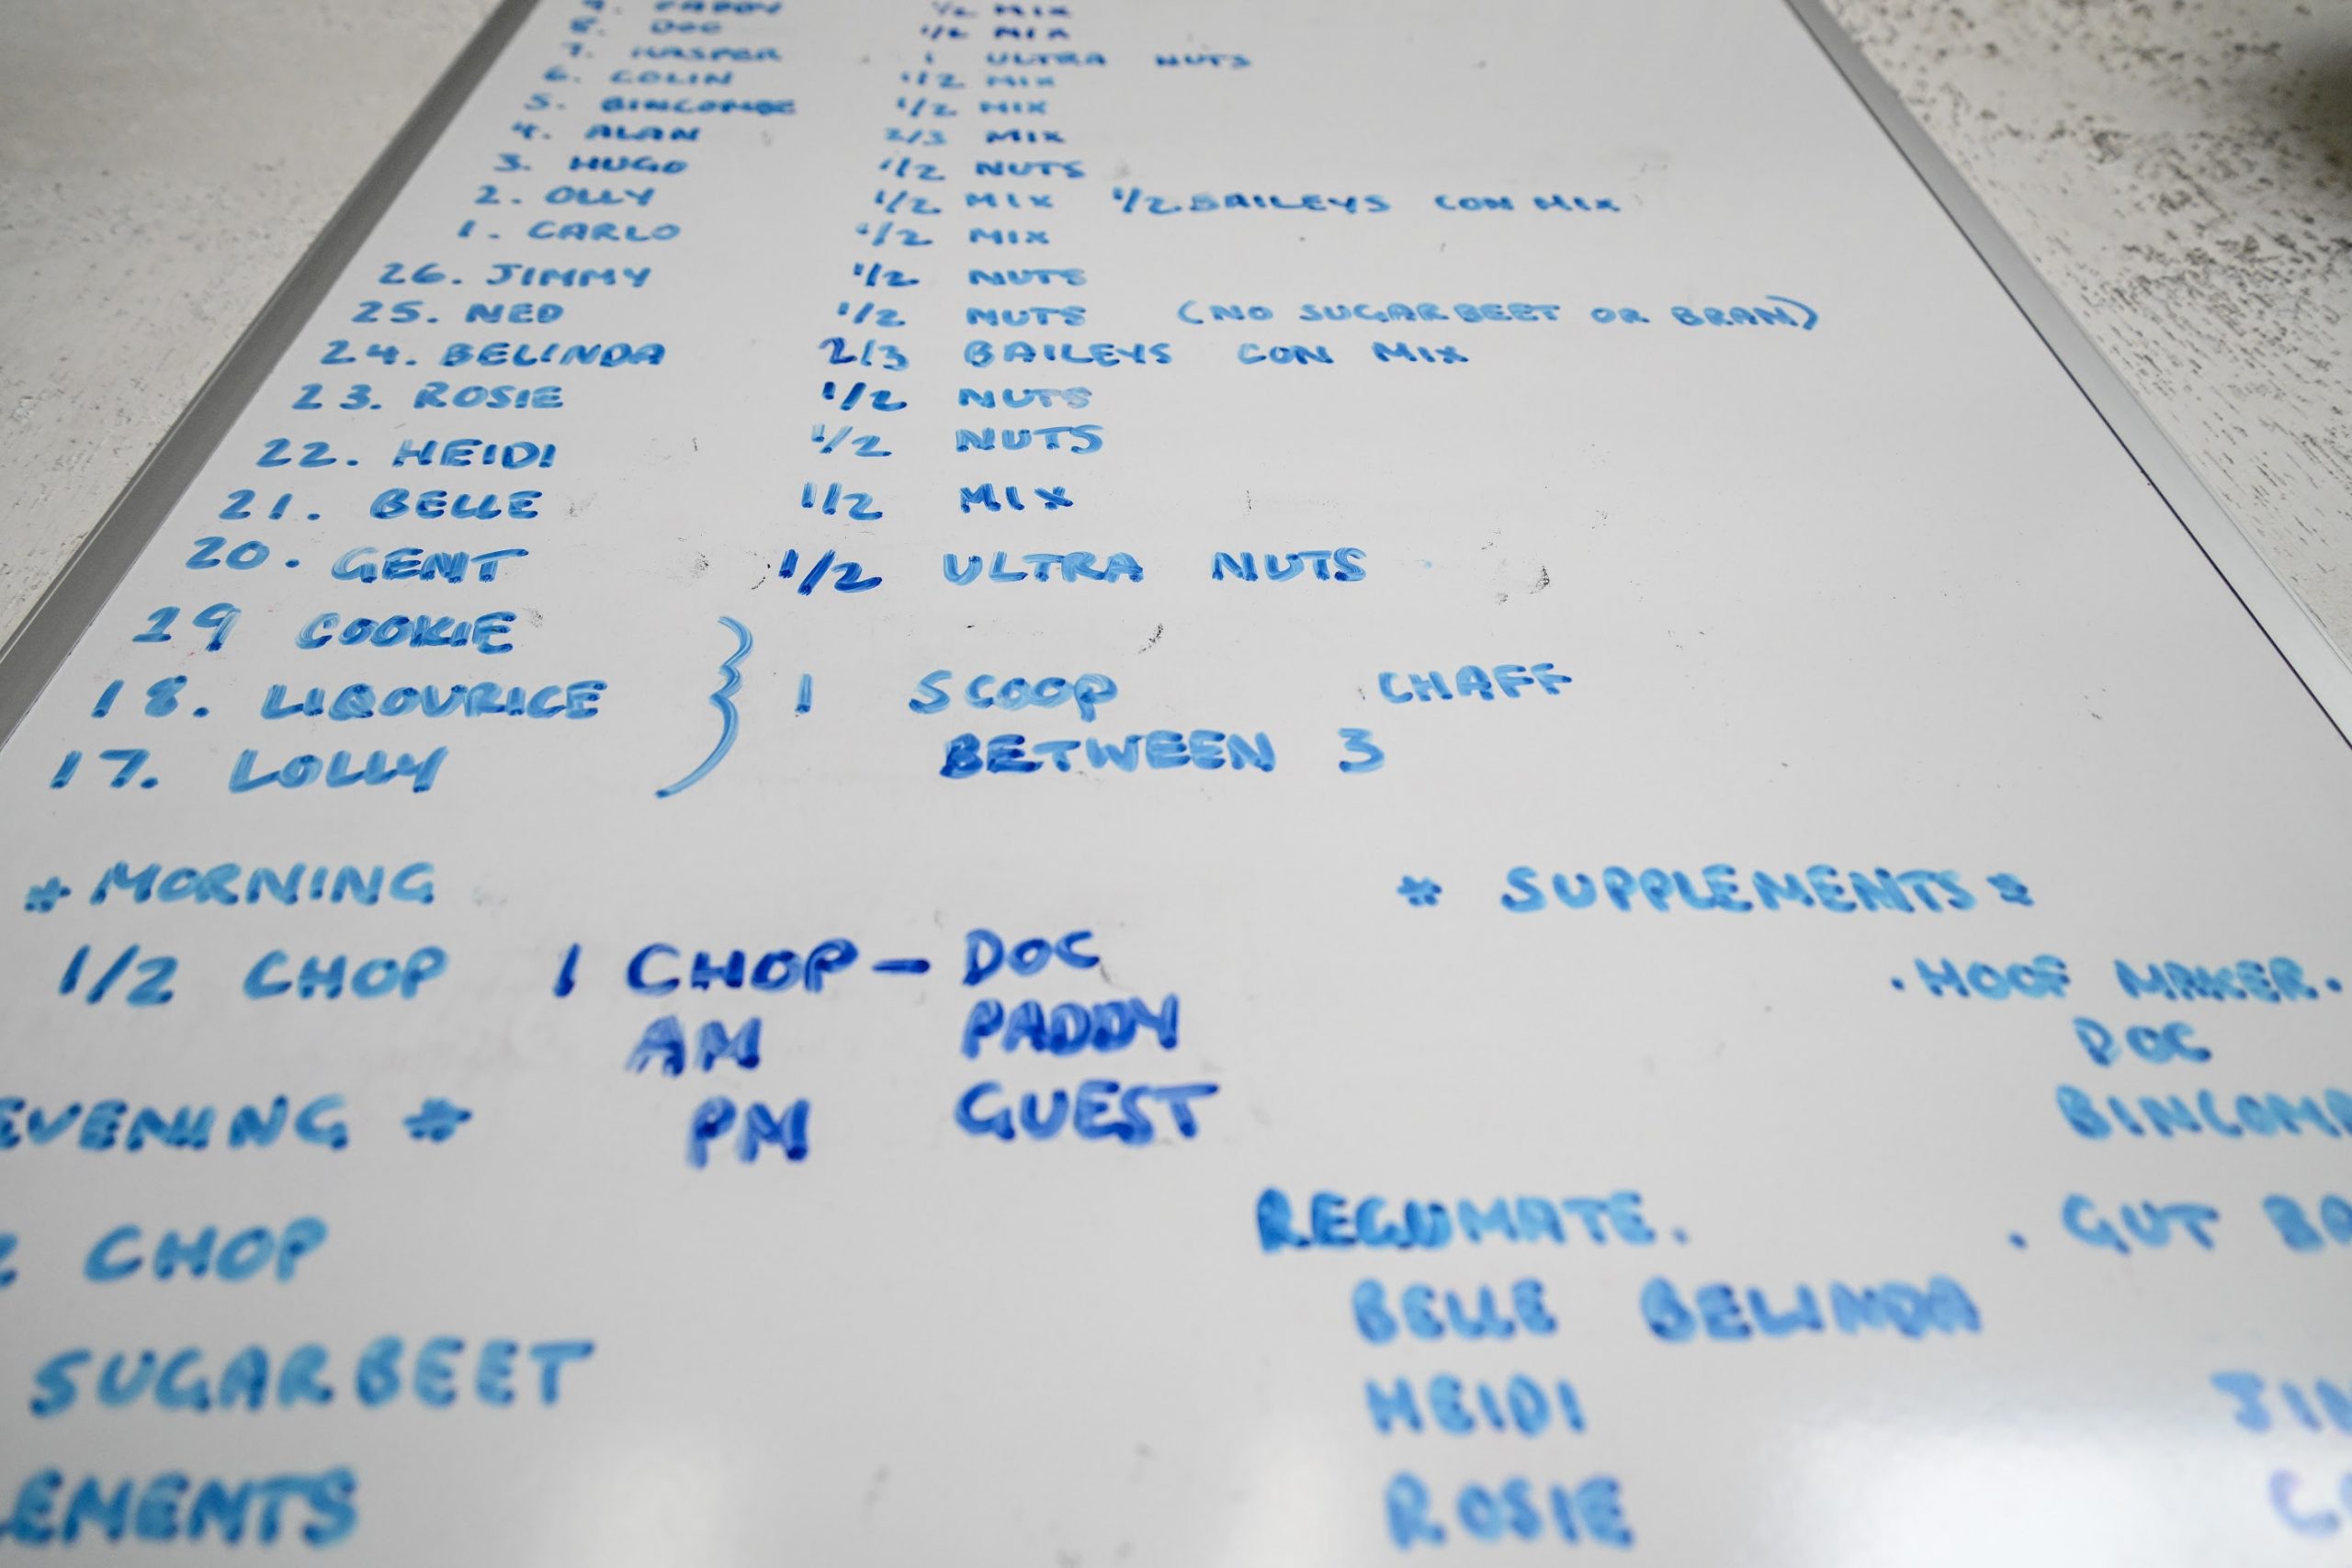 9. PADDY 1/2 MIX
8. DOC 1/2 MIX
7. KASPER 1 ULTRA NUTS
6. COLIN 1/2 MIX
5. BINCOMBE 1/2 MIX
4. ALAN 2/3 MIX
3. HUGO 1/2 NUTS
2. OLLY 1/2 MIX 1/2 BAILEYS CON MIX
1. CARLO 1/2 MIX
26. JIMMY 1/2 NUTS
25. NED 1/2 NUTS (NO SUGARBEET OR BRAN)
24. BELINDA 2/3 BAILEYS CON MIX
23. ROSIE 1/2 NUTS
22. HEIDI 1/2 NUTS
21. BELLE 1/2 MIX
20. GENT 1/2 ULTRA NUTS
29 COOKIE
18. LIQOURICE } 1 SCOOP CHAFF
17. LOLLY BETWEEN 3
* MORNING
1/2 CHOP
1 CHOP - DOC
AM PADDY
PM GUEST
EVENING *
CHOP
SUGARBEET
EMENTS
* SUPPLEMENTS *
. HOOF MAKER.
DOC
BINCOMB
. GUT BA
JIM
REGUMATE.
BELLE BELINDA
HEIDI
ROSIE